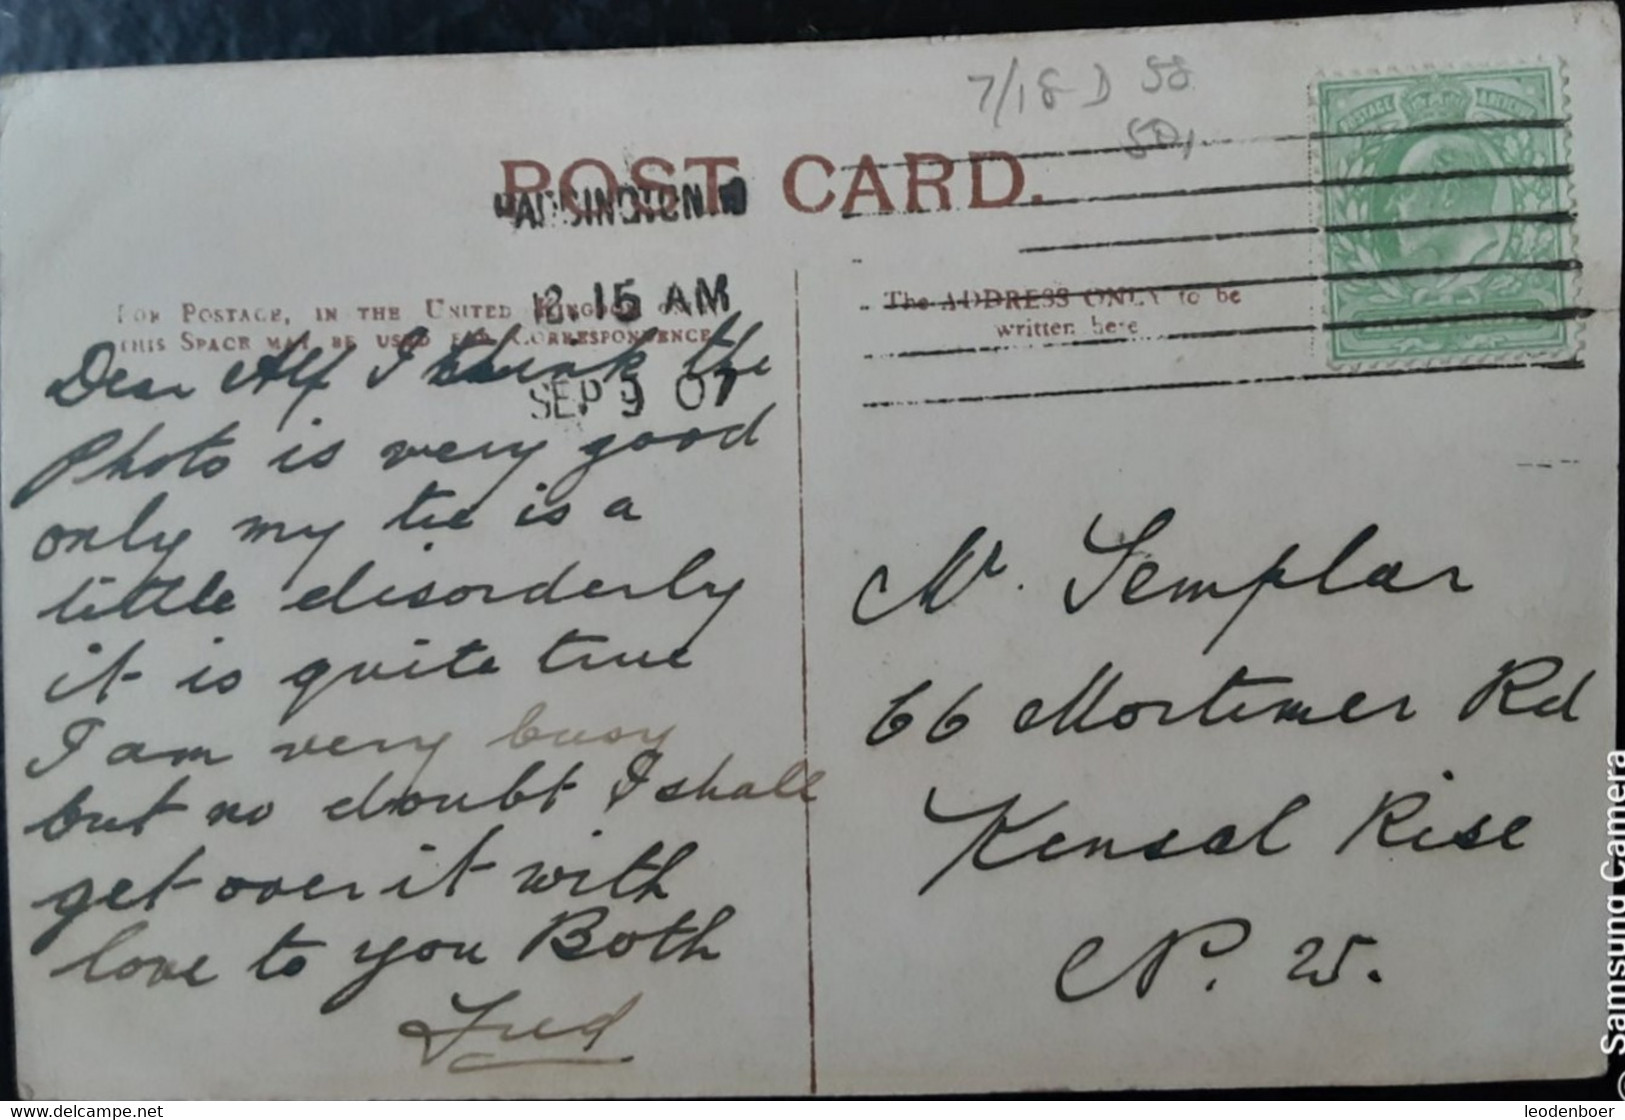 7/18 D
POST CARD.
PADDINGTON W
12.15 AM
SEP 9 07
FOR POSTAGE, IN THE UNITED KINGDOM ONLY
THIS SPACE MAY BE USED FOR CORRESPONDENCE
The ADDRESS ONLY to be
written here
POSTAGE
Dear Alf I think the
Photo is very good
only my tie is a
little disorderly
it is quite true
I am very busy
but no doubt I shall
get over it with
love to you Both
Fred
Mr. Templar
66 Mortimer Rd
Kensal Rise
N. W.
Samsung Camera
leodenboer